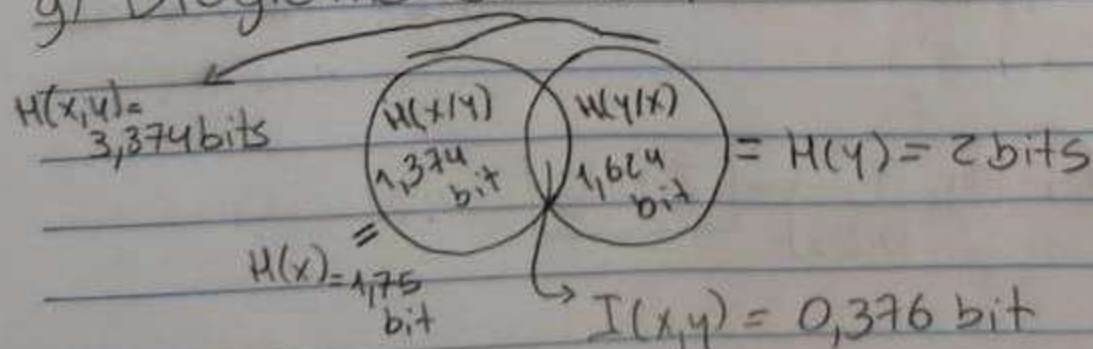 g) Diagrama
H(x,y)=
3,374 bits
H(x/y)
1,374
bit
H(y/x)
1,624
bit
= H(y) = 2 bits
=
H(x)=1,75
bit
I(x,y) = 0,376 bit